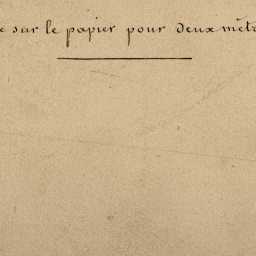 sur le papier pour deux mèt